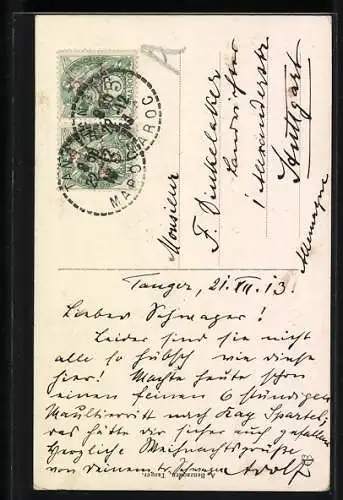 Monsieur
F. Dinkelaker
Landrichter
Alexanderstr
Stuttgart
Allemagne
A
TANGER
MAROC
MAROC
Tanger, 21. XII. 13.
Lieber Schwager!
Leider sind sie nicht
alle so hübsch wie diese
hier! Machte heute schon
einen feinen 6 stündigen
Maultierritt nach Kap Spartel;
das hätte dir sicher auch gefallen
Herzliche Weihnachtsgrüße
von deinem Schwager Adolf
Tanger.